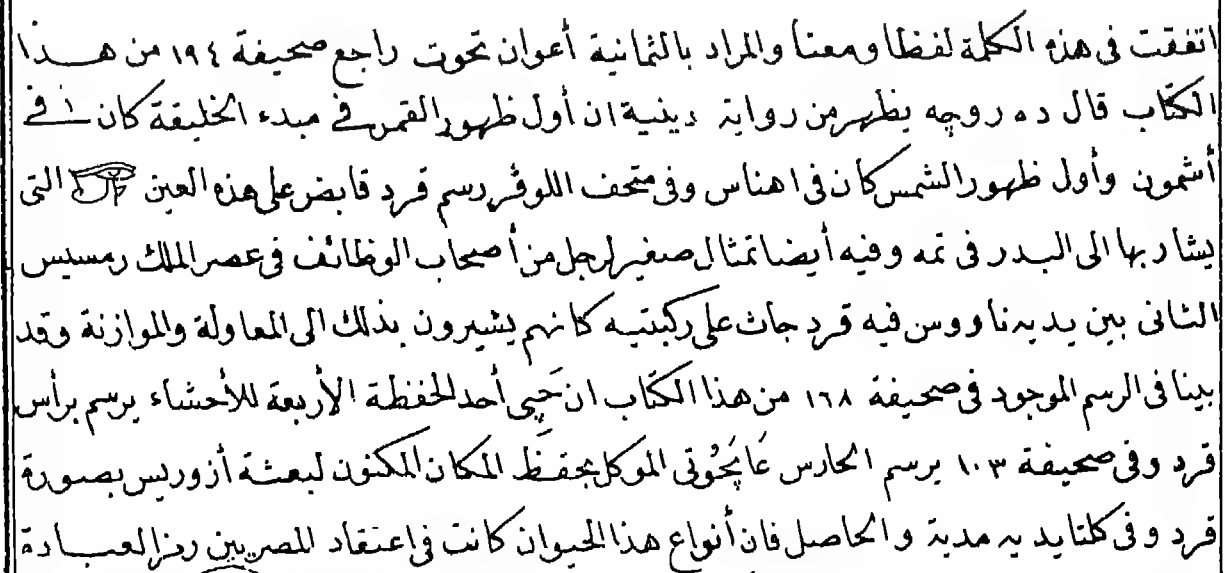 اتفقت فى هذه الكلمة لفظا ومعنا والمراد بالثمانية أعوان تحوت راجع صحيفة ١٩٤ من هـــذا
الكتاب قال ده روچه يظهر من رواية دينية ان أول ظهور القمر فى مبدء الخليقة كان فى
أشمون وأول ظهور الشمس كان فى اهناس وفى متحف اللوفر رسم قرد قابض على هذه العين التى
يشار بها الى البدر فى تمه وفيه أيضا تمثال صغير لرجل من أصحاب الوظائف فى عصر الملك رمسيس
الثانى بين يديه ناووس فيه قرد جاث على ركبتيه كانهم يشيرون بذلك الى المعاولة والموازنة وقد
بينا فى الرسم الموجود فى صحيفة ١٦٨ من هذا الكتاب ان حَپى أحد الحفظة الأربعة للأحشاء يرسم برأس
قرد وفى صحيفة ١٠٣ يرسم الحارس الموكل بحفظ المكان المكنون لبعثة أزوريس بصورة
قرد وفى كلتا يديه مدية والحاصل فان أنواع هذا الحيوان كانت فى اعتقاد المصريين رمز العبادة